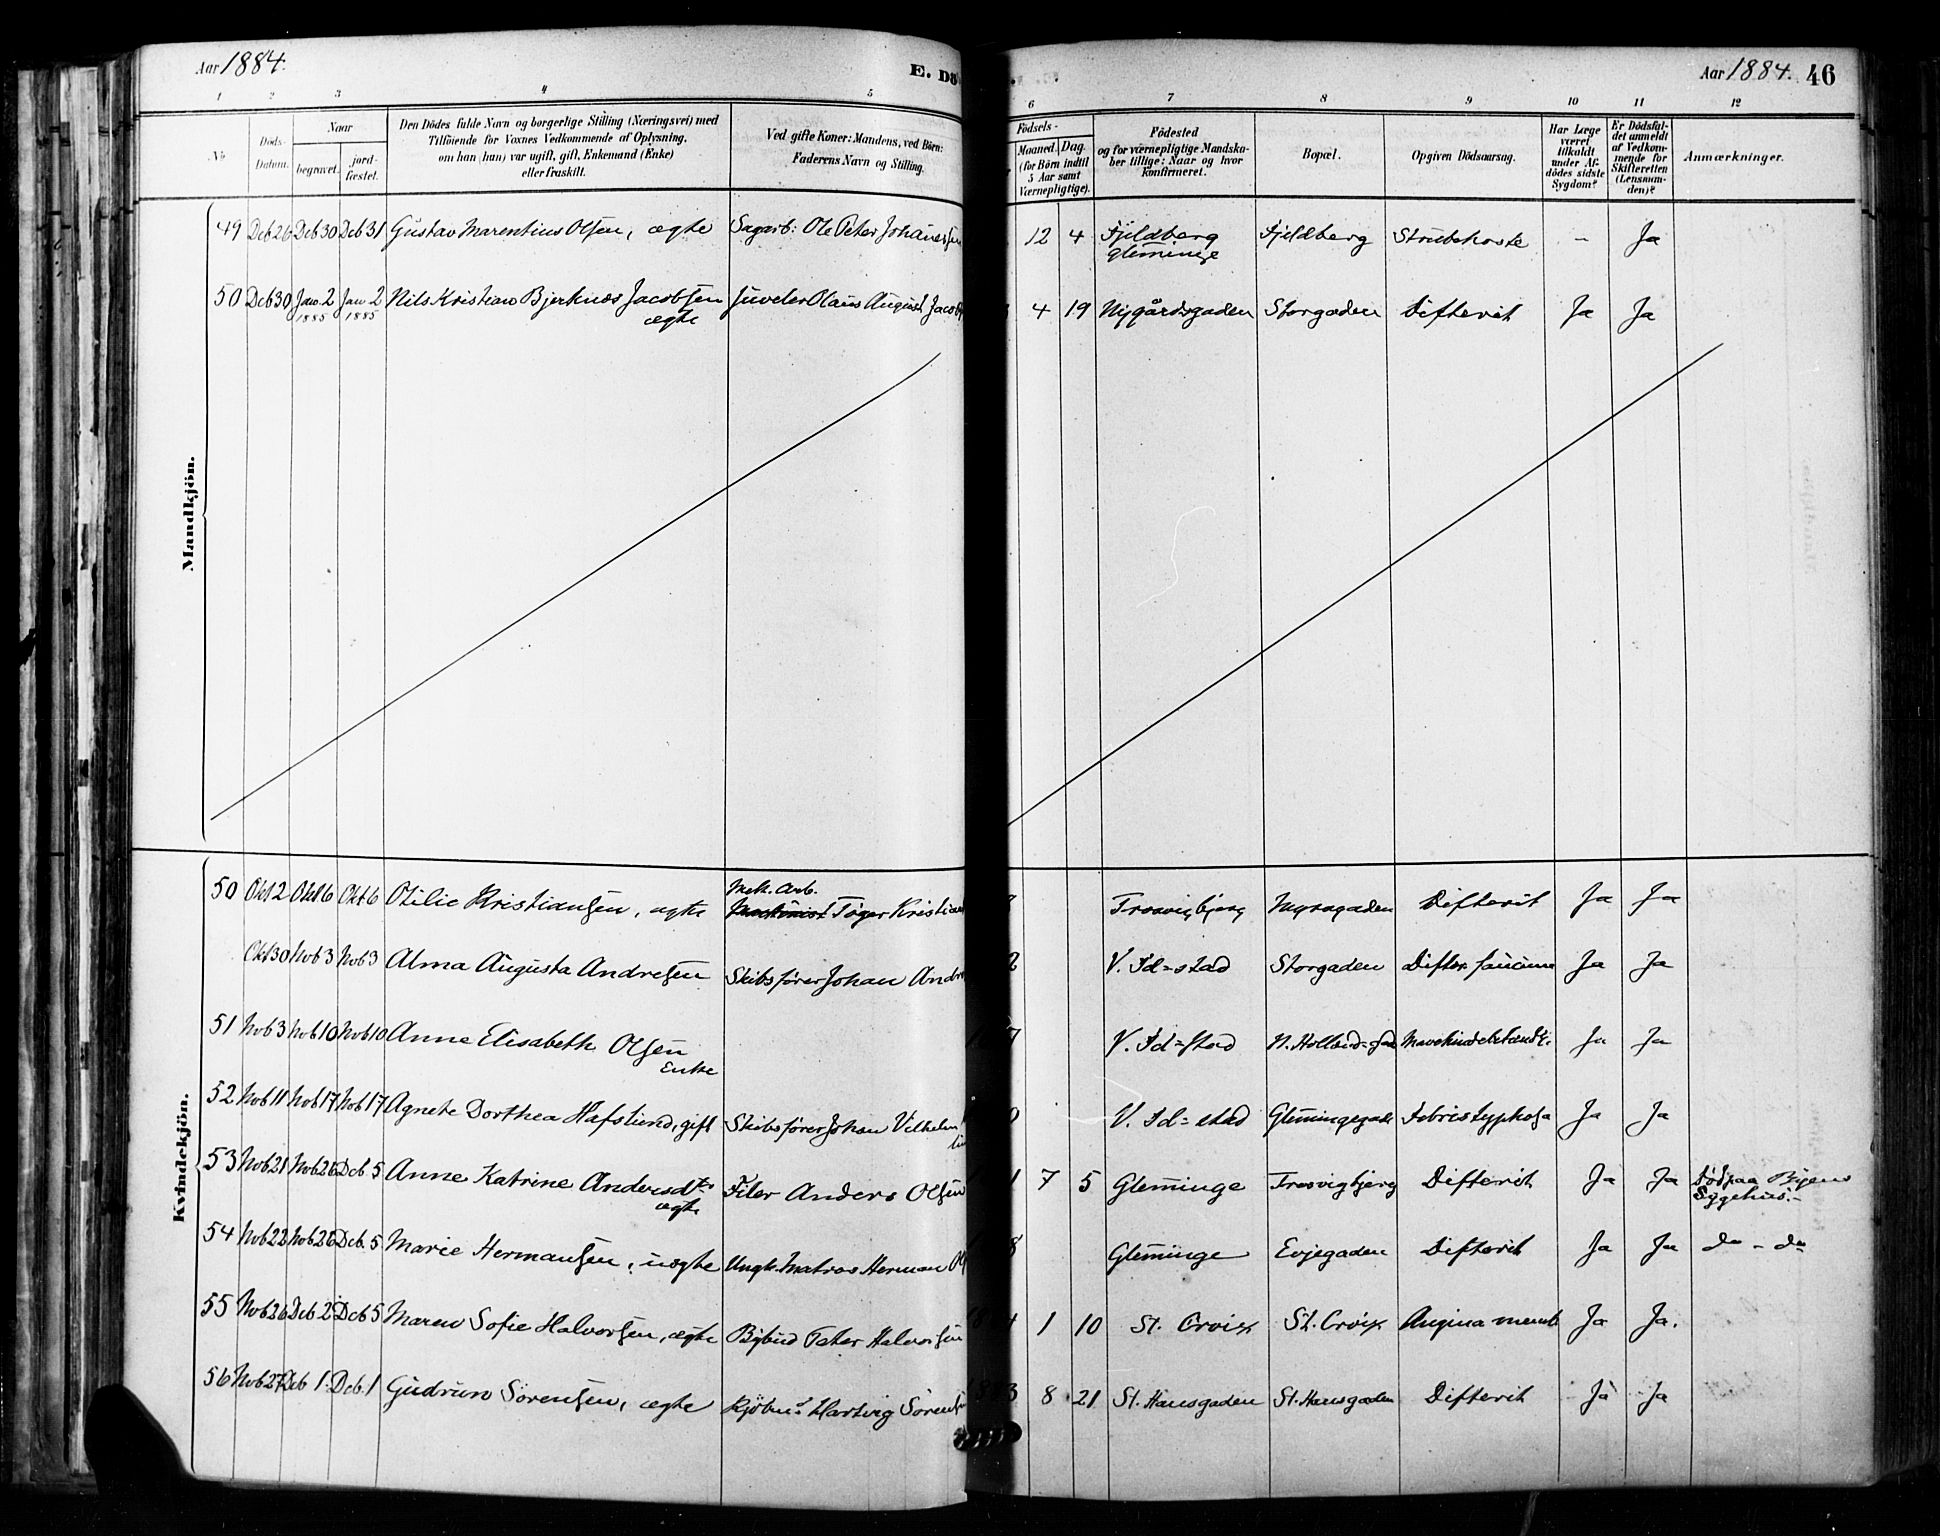 Aar 1884.
E. Dö
Aar 1884. 46
1 2 3 4 5 6 7 8 9 10 11 12
No
Döds-Datum.
Naar
begravet.
jord-fæstet.
Den Dödes fulde Navn og borgerlige Stilling (Næringsvei) med
Tilföiende for Voxnes Vedkommende af Oplysning,
om han (hun) var ugift, gift, Enkemand (Enke)
eller fraskilt.
Ved gifte Koner: Mandens, ved Börn:
Faderens Navn og Stilling.
Födsels-
Maaned. Dag.
(for Börn indtil
5 Aar samt
Værnepligtige).
Födested
og for værnepligtige Mandska-
ber tillige: Naar og hvor
Konfirmeret.
Bopæl.
Opgiven Dödsaarsag.
Har Læge
været
tilkaldt
under Af-
dödes sidste
Sygdom?
Er Dödsfal-
det anmeldt
af Vedkom-
mende for
Skifteretten
(Lensman-
den)?
Anmærkninger.
Mandkjön.
49 Deb 26 Deb 30 Deb 31 Gustav Marentius Olsen, ægte Sagarb: Ole Peter Johanessen 12 4 Fjeldberg Fjeldberg Strubehoste - Ja
Gleminge
50 Deb 30 Jan. 2 Jan 2 Nils Kristian Bjerknes Jacobsen Juveler Olaus August Jacobs 4 19 Nygårdsgaden Storgaden Difterit Ja Ja
1885 1885 ægte
Kvindekjön.
Mek. Arb.
50 Okt 2 Okt 6 Okt 6 Otilie Kristiansen, ægte Maskinist Töger Kristian Trosvigbjerg Myragaden Difterit Ja Ja
Okt 30 Nob 3 Nob 3 Alma Augusta Andresen Skibsförer Johan Andre V. Id=stad Storgaden Difter. faucium Ja Ja
51 Nob 3 Nob 10 Nob 10 Anne Elisabeth Olsen V. Id=stad N. Holland=gad Ja Ja
Enke
52 Nob 11 Nob 17 Nob 17 Agnete Dorthea Hafslund, gift Skibsförer Johan Vilhelm V. Id=stad Glemingegade Febris typhosa Ja Ja
53 Nob 21 Nob 26 Deb 5 Anne Katrine Andersdtr Filer Anders Olsen 1 7 5 Gleminge Trosvigbjerg Difterit Ja Ja Död paa Byens
ægte Sygehus.-
54 Nob 22 Nob 26 Deb. 5 Marie Hermansen, uægte Ungk. Matros Herman Ol 8 Gleminge Evjegaden Difterit Ja Ja do - do
55 Nob 26 Deb 2 Deb 5 Maren Sofie Halvorsen, ægte Bybud Peter Halvorsen 4 1 10 St. Croix St. Croix Angina memb Ja Ja.
56 Nob 27 Deb 1. Deb. 1 Gudrun Sörensen, ægte Kjöbmd Hartvig Sörens 3 8 21 St. Hansgaden St. Hansgaden Difterit Ja Ja